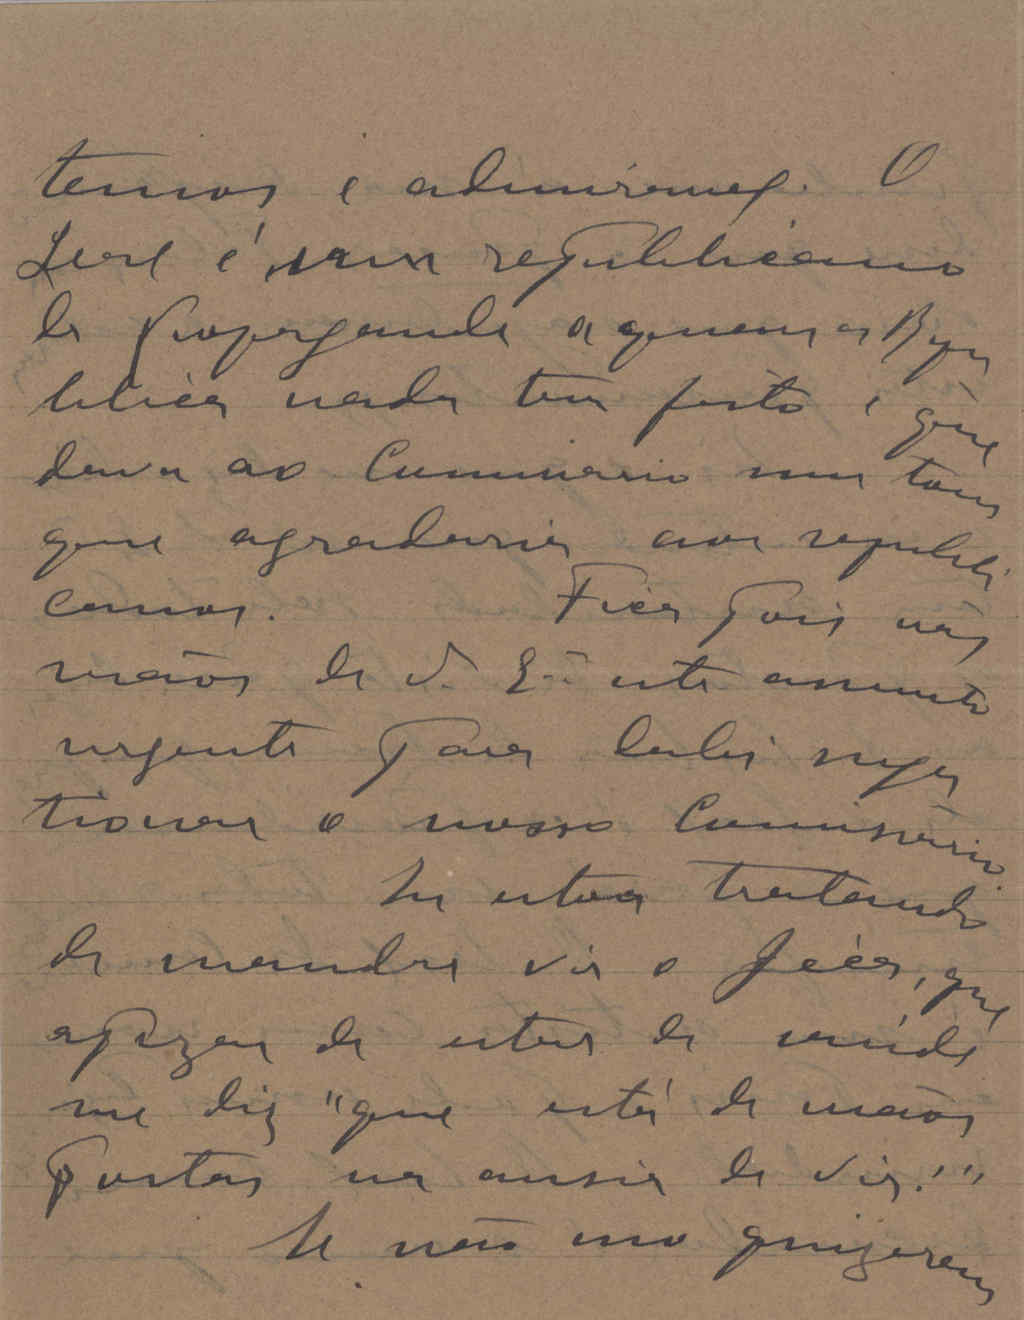 temos e admiramos. O
Leal é um republicano
da Propaganda a quem a Repu
blica nada tem feito e que
dava ao Comissario um tom
que agradaria aos republi
canos. Fica pois nas
mãos de V. Exª este assunto
urgente para
o nosso Comissario.
Eu estou tratando
de mandar vir o Jéca, que
apezar de estar de saúde
me diz "que está de mãos
postas na ansia de vir!"
Se não mo quizerem